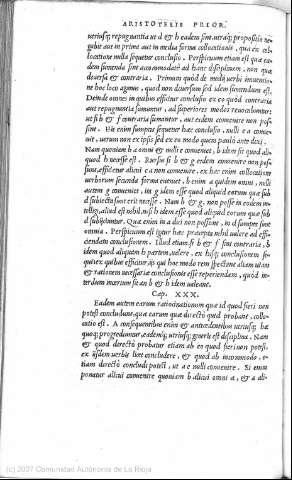 ARISTOTELIS PRIOR.
utriusq; repugnantia ut d & h eadem sint. utraq; propositio ne-
gabit aut in prima aut in media forma collectionis, qua ex col-
locatione nulla sequetur conclusio. Perspicuum etiam est quæ ea-
dem sumenda sint accommodatè ad hanc disciplinam, non quæ
diuersa & contraria. Primum quòd de medij uerbi inuentio-
ne hoc loco agimus, quod non diuersum sed idem sumendum est.
Deinde omnes in quibus efficitur conclusio ex eo quòd contraria
aut repugnantia sumantur, ad superiores modos reuocabuntur:
ut si b & f contraria sumantur, aut eidem conuenire non pos-
sint. His enim sumptis sequetur hæc conclusio, nulli e a conue-
nit, uerum non ex ipsis sed ex eo modo quem paulò ante dixi.
Nam quoniam b a omni & nulli e conueniet, b idem sit quod ali-
quod h necesse est. Rursus si b & g eidem conuenire non pos-
sint, efficietur alicui e a non conuenire, ex hac enim collocatione
uerborum secunda forma existet, b enim a quidem omni, nulli
autem g conueniet, in g idem esse quod aliquid eorum quæ sub
d subiecta sunt erit necesse. Nam b & g, non posse in eodem in-
telligi, aliud est nihil nisi b idem esse quod aliquid eorum quæ sub
d subijciuntur. Quæ enim in a dici non possunt, in d sumpta sunt
omnia. Perspicuum est igitur hæc præcepta nihil ualere ad effi-
ciendam conclusionem. Illud etiam si b & f sint contraria, b
idem quod aliquem h partem ualere, ex hisq; conclusionem se-
qui: ex quibus efficitur ijs qui hoc modo rem spectant aliam uiam
et rationem necessariæ conclusionis esse reperiendam, quòd in-
terdum moerum sit an b & h idem ualeant.
Cap. XXX.
Eadem autem earum ratiocinationum quæ id quod fieri non
potest concludunt quæ earum quæ directò quid probant, colle-
ctio est. A consequentibus enim & antecedentibus utriusq; hæ
quoq; progrediuntur, eademq; utriusq; generis est disciplina. Nam
& quod directò probatur etiam ab eo quod fieri non potest,
ex ijsdem uerbis licet concludere, & quod ab incommodo, e-
tiam directò concludi potest, ut a e nulli conuenire. Si enim
ponatur alicui conuenire quoniam b alicui omni a, & a ali-
(c) 2007 Comunidad Autónoma de La Rioja